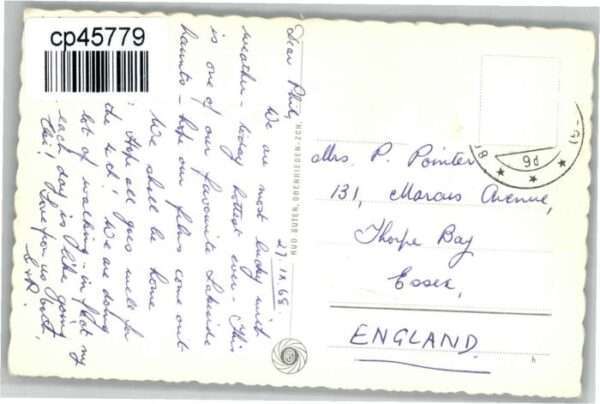 cp45779
Dear Phil,
We are most lucky with
weather - today hottest ever. This
is one of our favourite Lakeside
haunts - hope our films come out
We shall be home
Hope all goes well for
We are doing
lot of walking - in fact my
each day is like going
Love from us both,
27.IX.68
Mrs. P. Pointer
131, Marcus Avenue,
Thorpe Bay
Essex,
ENGLAND